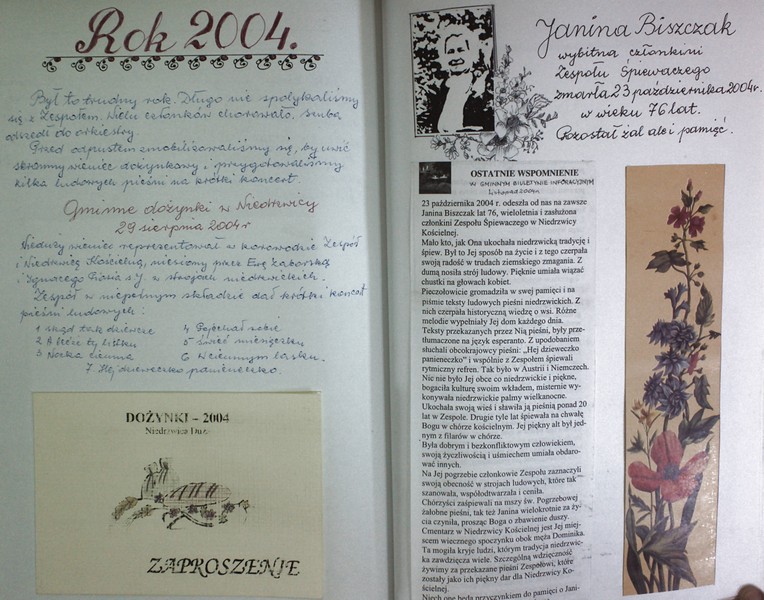 Rok 2004.
Był to trudny rok. Długo nie spotykaliśmy
się z Zespołem. Wielu członków chorowało,
odszedł do orkiestry.
Przed odpustem zmobilizowaliśmy się, by uwić
skromny wieniec dożynkowy i przygotowaliśmy
kilka ludowych pieśni na krótki koncert.
Gminne dożynki w Niedrzwicy
29 sierpnia 2004r
Nieduży wieniec reprezentował w korowodzie Zespół
i Niedrzwicę Kościelną, niesiony przez Ewę Zaborską
i Ignacego w strojach niedrzwickich.
Zespół w niepełnym składzie dał krótki koncert
pieśni ludowych:
1 skąd tak dziewcze
2 A bicie ty
3 Nocka ciemna
4 Pojechał sobie
5 Świeć miesiączku
6 W ciemnym lasku.
7. Hej dziewczko panieneczko.
DOŻYNKI – 2004
Niedrzwica Duża
ZAPROSZENIE
Janina Biszczak
wybitna członkini
Zespołu Śpiewaczego
zmarła 23 października 2004r.
w wieku 76 lat.
Pozostał żal ale i pamięć.
OSTATNIE WSPOMNIENIE
W GMINNYM BIULETYNIE INFORACYJNYM
Listopad 2004r.
23 października 2004 r. odeszła od nas na zawsze
Janina Biszczak lat 76, wieloletnia i zasłużona
członkini Zespołu Śpiewaczego w Niedrzwicy
Kościelnej.
Mało kto, jak Ona ukochała niedrzwicką tradycję i
śpiew. Był to Jej sposób na życie i z tego czerpała
swoją radość w trudach ziemskiego zmagania. Z
dumą nosiła strój ludowy. Pięknie umiała wiązać
chustki na głowach kobiet.
Pieczołowicie gromadziła w swej pamięci i na
piśmie teksty ludowych pieśni niedrzwickich. Z
nich czerpała historyczną wiedzę o wsi. Różne
melodie wypełniały Jej dom każdego dnia.
Teksty przekazanych przez Nią pieśni, były prze-
tłumaczone na język esperanto. Z upodobaniem
słuchali obcokrajowcy pieśni: „Hej dzieweczko
panieneczko” i wspólnie z Zespołem śpiewali
rytmiczny refren. Tak było w Austrii i Niemczech.
Nic nie było Jej obce co niedrzwickie i piękne,
bogaciła kulturę swoim wkładem, misternie wy-
konywała niedrzwickie palmy wielkanocne.
Ukochała swoją wieś i sławiła ją pieśnią ponad 20
lat w Zespole. Drugie tyle lat śpiewała na chwałę
Bogu w chórze kościelnym. Jej piękny alt był jed-
nym z filarów w chórze.
Była dobrym i bezkonfliktowym człowiekiem,
swoją życzliwością i uśmiechem umiała obdaro-
wać innych.
Na Jej pogrzebie członkowie Zespołu zaznaczyli
swoją obecność w strojach ludowych, które tak
szanowała, współodtwarzała i ceniła.
Chórzyści zaśpiewali na mszy św. Pogrzebowej
żałobne pieśni, tak też Janina wielokrotnie za ży-
cia czyniła, prosząc Boga o zbawienie duszy.
Cmentarz w Niedrzwicy Kościelnej jest Jej miej-
scem wiecznego spoczynku obok męża Dominika.
Ta mogiła kryje ludzi, którym tradycja niedrzwic-
ka zawdzięcza wiele. Szczególną wdzięczność
żywimy za przekazane pieśni Zespołowi, które
zostały jako ich piękny dar dla Niedrzwicy Ko-
ścielnej.
Niech one będą przyczynkiem do pamięci o Jani-